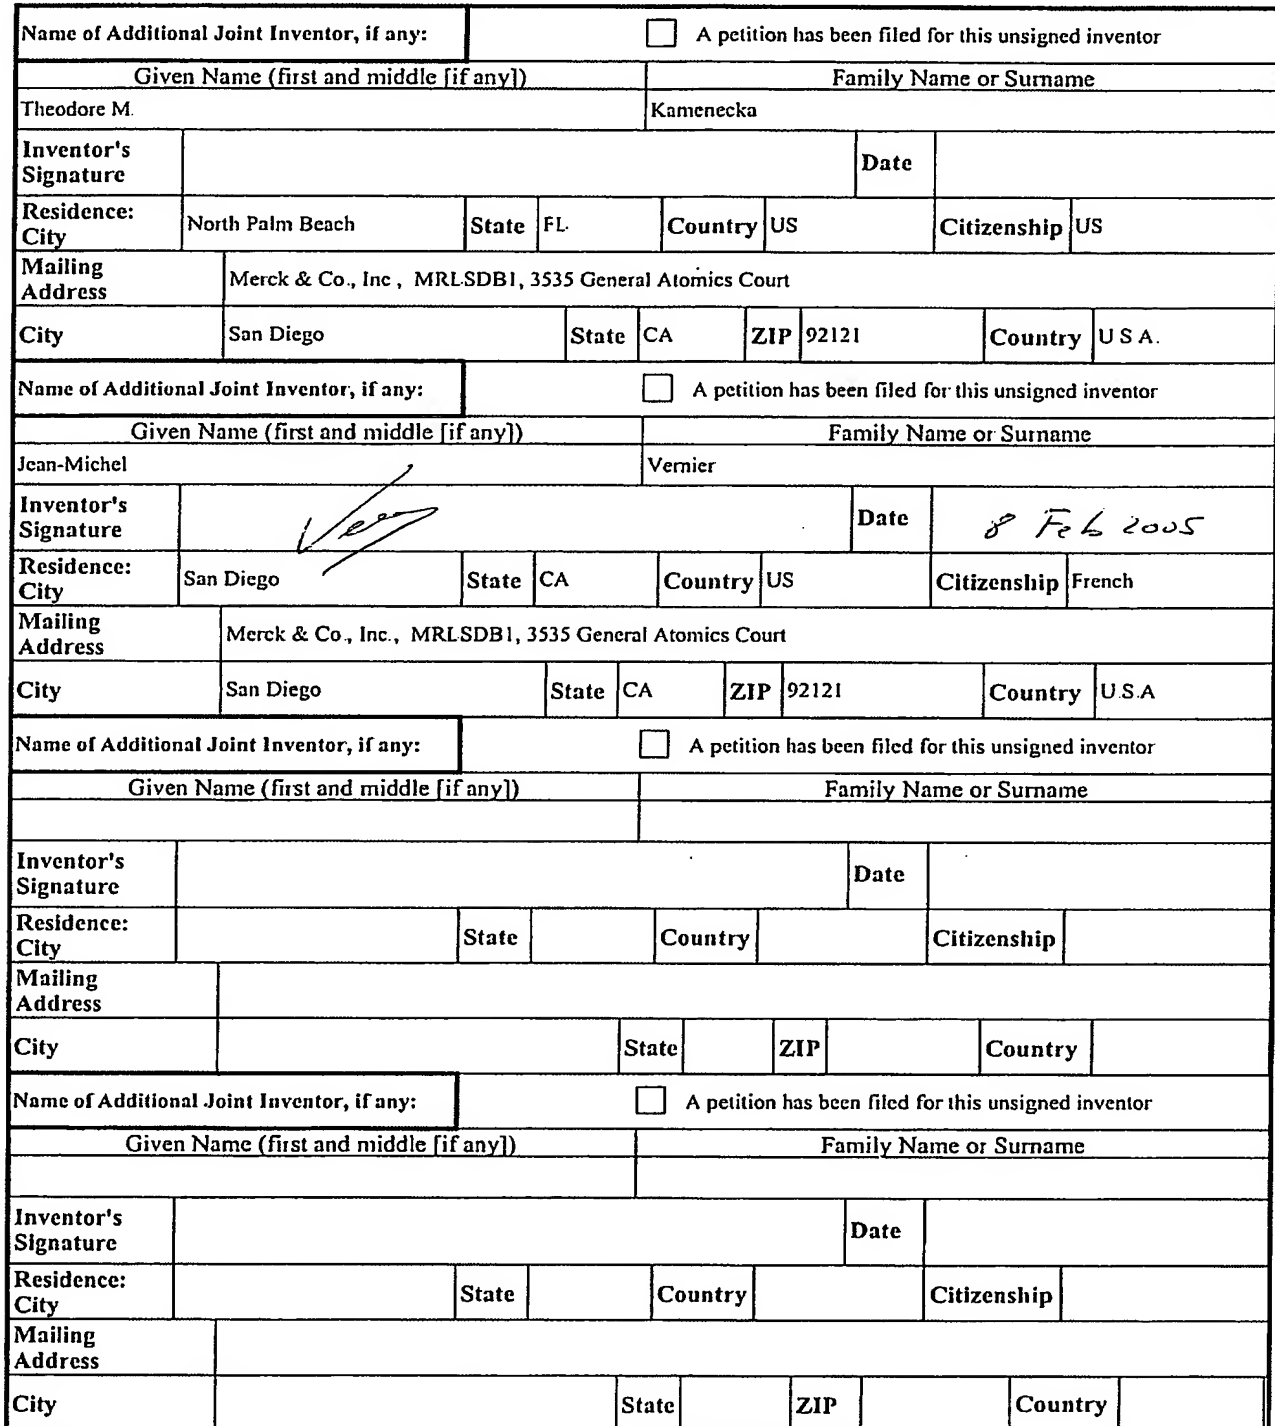 Name of Additional Joint Inventor, if any: A petition has been filed for this unsigned inventor
Given Name (first and middle [if any]) Family Name or Surname
Theodore M. Kamenecka
Inventor's Signature Date
Residence: City North Palm Beach State FL. Country US Citizenship US
Mailing Address Merck & Co., Inc , MRLSDB1, 3535 General Atomics Court
City San Diego State CA ZIP 92121 Country U S A.
Name of Additional Joint Inventor, if any: A petition has been filed for this unsigned inventor
Given Name (first and middle [if any]) Family Name or Surname
Jean-Michel Vernier
Inventor's Signature Date 8 Feb 2005
Residence: City San Diego State CA Country US Citizenship French
Mailing Address Merck & Co., Inc., MRLSDB1, 3535 General Atomics Court
City San Diego State CA ZIP 92121 Country U.S.A
Name of Additional Joint Inventor, if any: A petition has been filed for this unsigned inventor
Given Name (first and middle [if any]) Family Name or Surname
Inventor's Signature Date
Residence: City State Country Citizenship
Mailing Address
City State ZIP Country
Name of Additional Joint Inventor, if any: A petition has been filed for this unsigned inventor
Given Name (first and middle [if any]) Family Name or Surname
Inventor's Signature Date
Residence: City State Country Citizenship
Mailing Address
City State ZIP Country